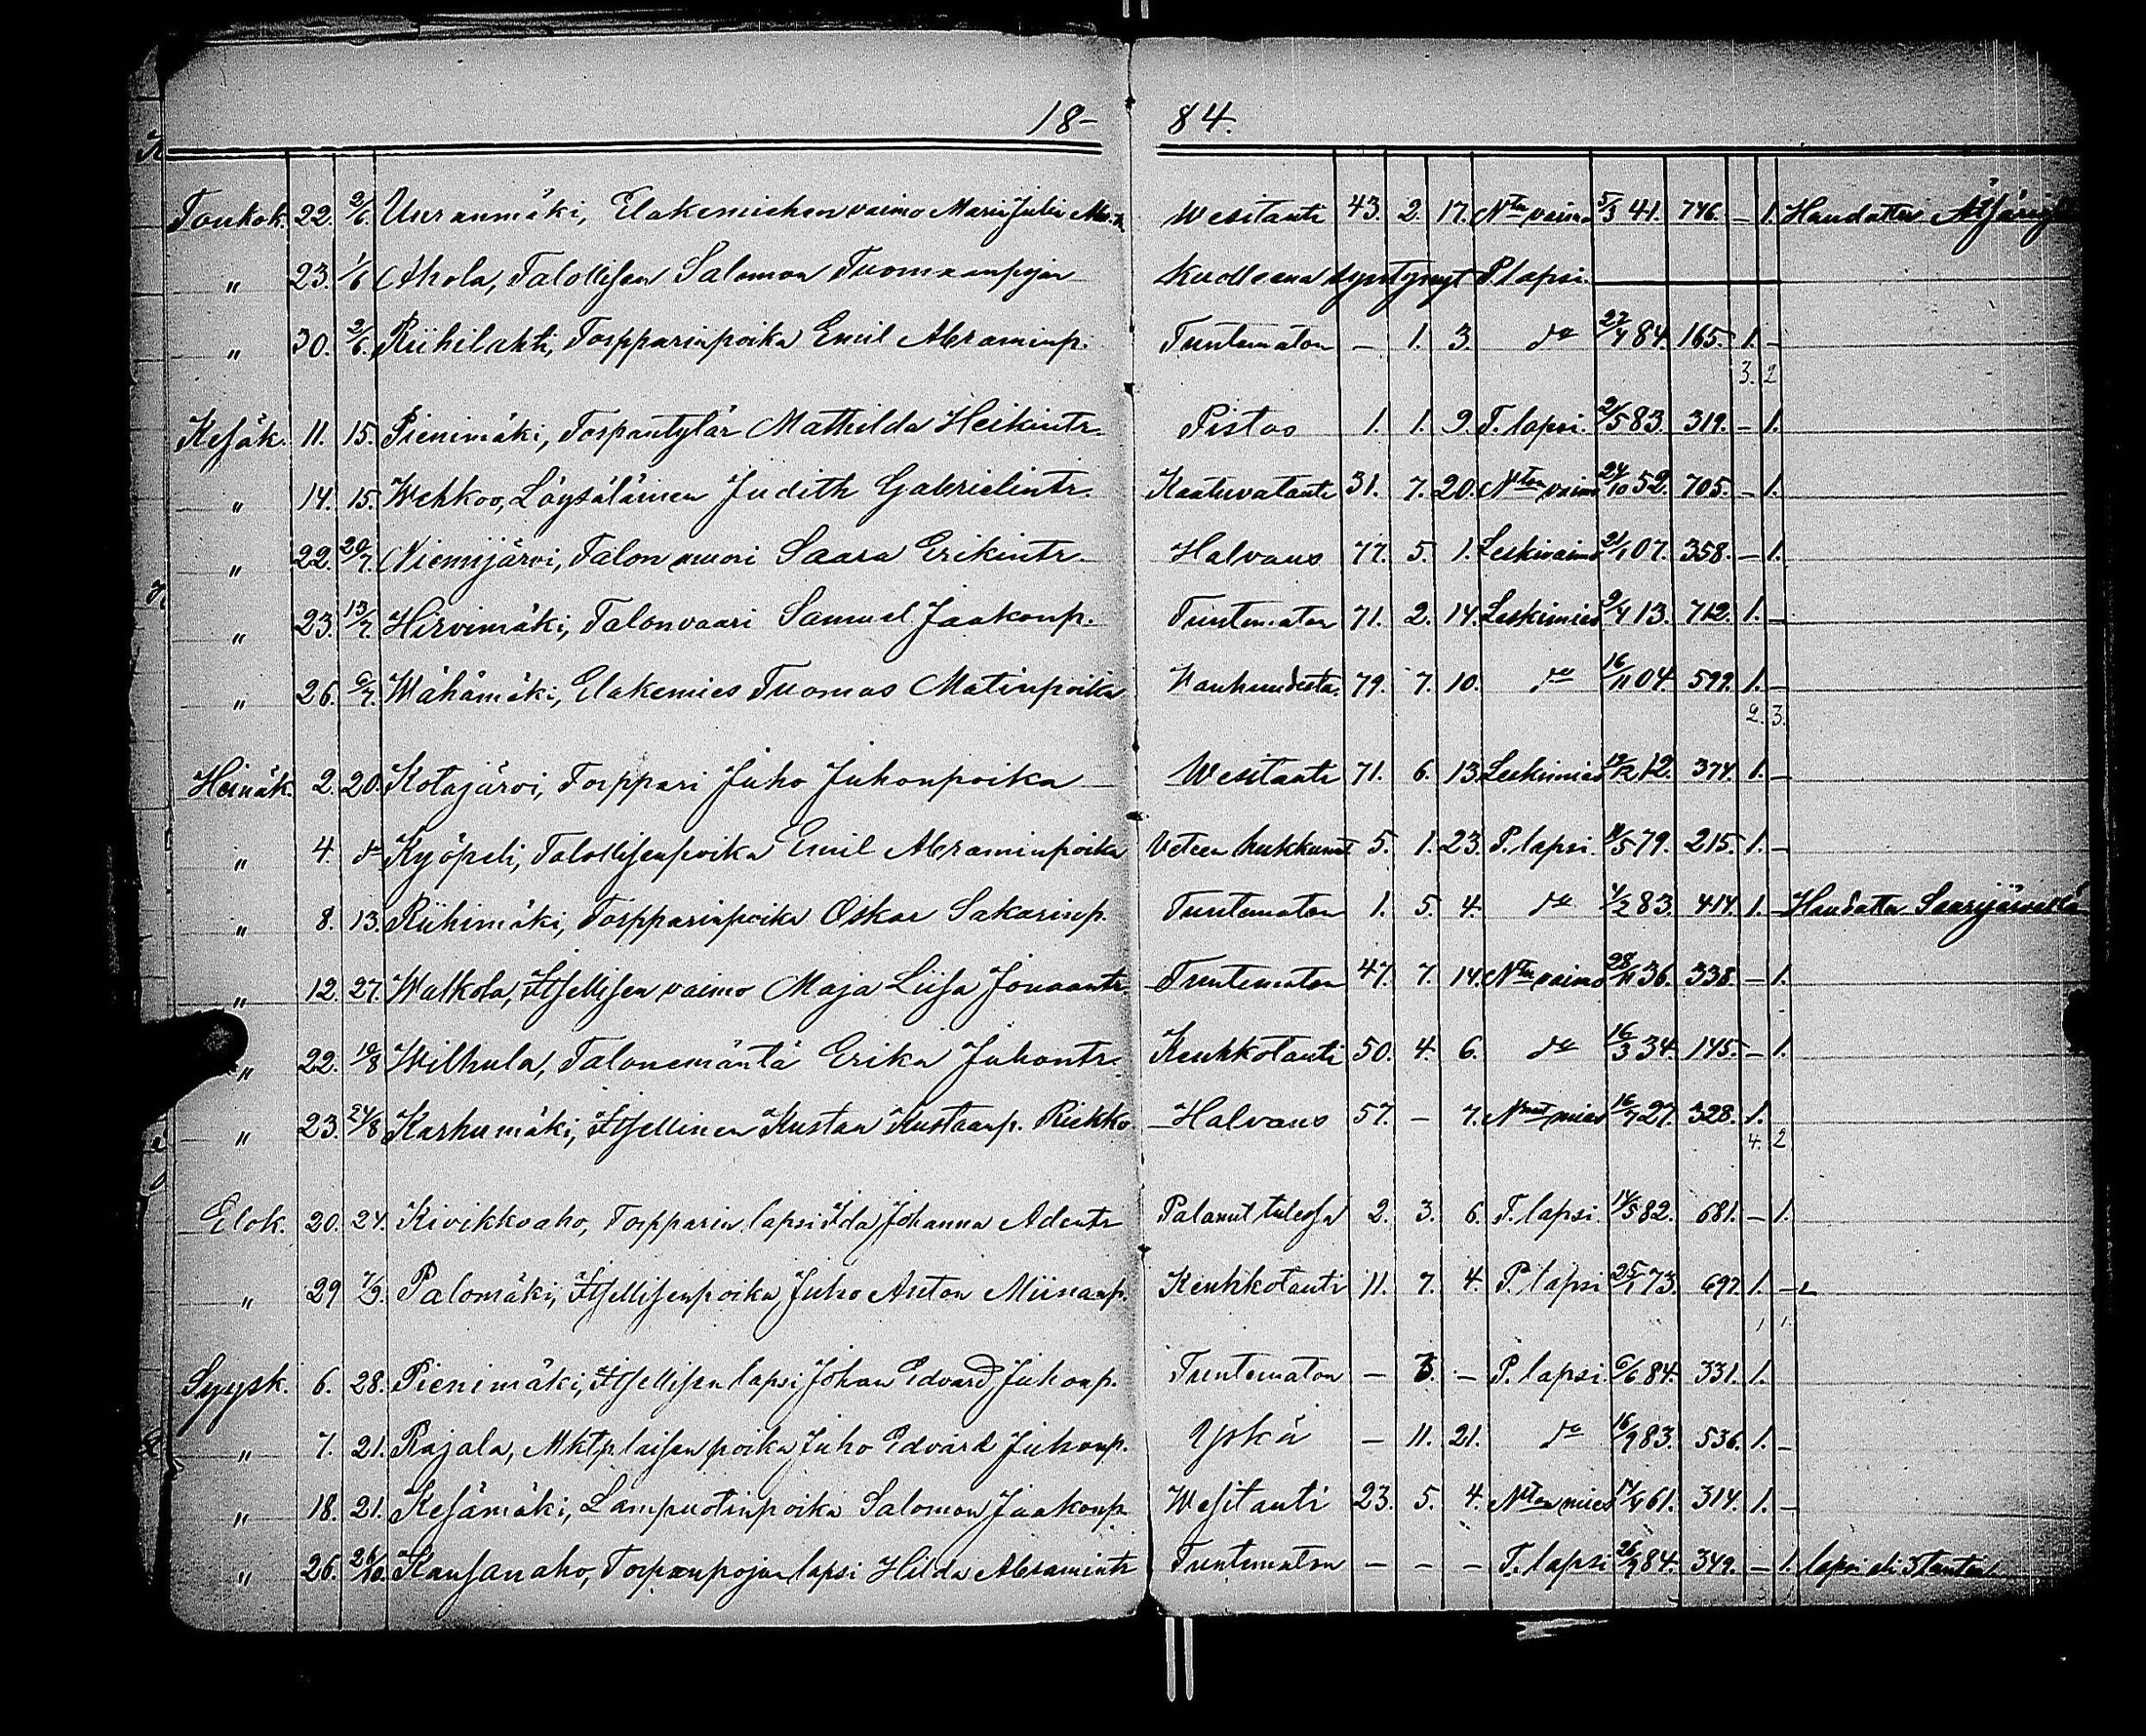 18- 84.
Toukok. 22. 2/6 Uuranmäki, Elakemiehen vaimo Maria Wesitauti 43. 2. 17. Nten vaimo 5/3 41. 746. – 1. Haudattu
" 23. 1/6 Ahola, Talollisen Salomon Tuomaanpojan Kuolleena syntynyt P. lapsi.
" 30. 2/6 Riihilahti, Torpparinpoika Emil Abraminp. Tuntematon – 1. 3. do 27/4 84. 165. 1. –
3. 2
Kesäk. 11. 15. Pienimäki, Torpantytär Mathilda Heikintr. Pistos 1. 1. 9. T. lapsi. 2/5 83. 319. – 1.
" 14. 15. Wehkoo, Löysäläinen Judith Gabrielintr. Kaatuvatauti 31. 7. 20. Nton vaimo 24/10 52. 705. – 1.
" 22. 20/7. Niemijärvi, Talon muori Saara Erikintr. Halvaus 77. 5. 1. Leskivaimo 21/1 07. 358. – 1.
" 23. 13/7. Hirvimäki, Talonvaari Samuel Jaakonp. Tuntematon 71. 2. 14. Leskimies 9/4 13. 712. 1. –
" 26. 6/7. Wähämäki, Elakemies Tuomas Matinpoika Wanhuudesta 79. 7. 10. do 16/11 04. 599. 1. –
2. 3.
Heinäk. 2. 20. Kotajärvi, Torppari Juho Juhonpoika Wesitauti 71. 6. 13. Leskimies 19/12 12. 374. 1. –
" 4. do Kyöpeli, Talollisenpoika Emil Abraminpoika Veteen hukkunut 5. 1. 23. P. lapsi. 11/5 79. 215. 1. –
" 8. 13. Riihimäki, Torpparinpoika Oskar Sakarinp. Tuntematon 1. 5. 4. do 4/2 83. 414. 1. – Haudattu Saarijärvellä
" 12. 27. Walkola, Itsellisen vaimo Maja Liisa Jonaantr. Tuntematon 47. 7. 14. Nten vaimo 28/11 36. 338. – 1.
" 22. 10/8 Wilhula, Talonemäntä Erika Juhontr. Keuhkotauti 50. 4. 6. do 16/3 34. 145. – 1.
" 23. 24/8 Karhumäki, Itsellinen Kustaa Kustaanp. Riekko Halvaus 57. – 7. Nnut mies 16/7 27. 328. 1.
4. 2
Elok. 20. 24. Kivikkoaho, Torpparin lapsi Ida Johanna Adentr Palanut tulessa 2. 3. 6. T. lapsi. 14/5 82. 681. – 1.
" 29 7/9. Palomäki, Itsellisenpoika Juho Anton Miinanp. Keuhkotauti 11. 7. 4. P. lapsi 25/1 73. 697. 1. –
1 1.
Syysk. 6. 28. Pienimäki, Itsellisen lapsi Johan Edvard Juhonp. Tuntematon – 3. – P. lapsi. 6/6 84. 331. 1.
" 7. 21. Rajala, Juho Edvard Juhonp. Yskä – 11. 21. do 16/9 83. 536. 1. –
" 18. 21. Kesämäki, Lampuotinpoika Salomon Jaakonp. Wesitauti 23. 5. 4. Nton mies 14/4 61. 314. 1. –
" 26. 26/10. Kansanaho, Torpanpojan lapsi Hilda Abramintr Tuntematon – – – T. lapsi 26/9 84. 349. – 1. lapsi eli 3 tuntia